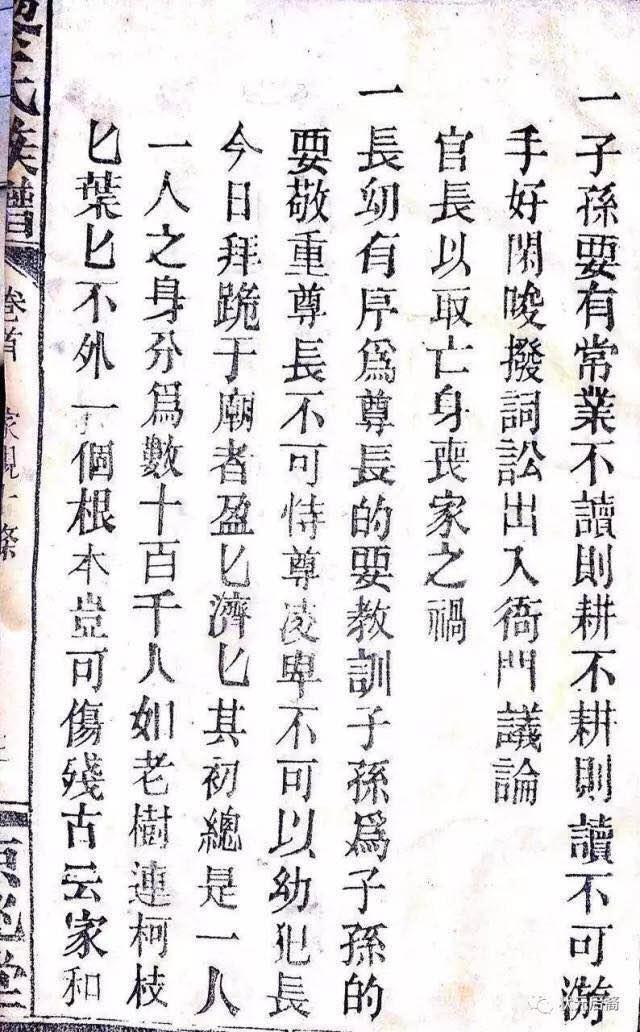 一子孫要有常業不讀則耕不耕則讀不可游
手好閑唆撥詞訟出入衙門議論
官長以取亡身喪家之禍
一長幼有序爲尊長的要教訓子孫爲子孫的
要敬重尊長不可恃尊凌卑不可以幼犯長
今日拜跪于廟者盈匕濟匕其初總是一人
一人之身分爲數十百千人如老樹連柯枝
匕葉匕不外一個根本豈可傷殘古云家和
氏族譜
卷首
家規十條
堂
状元后裔